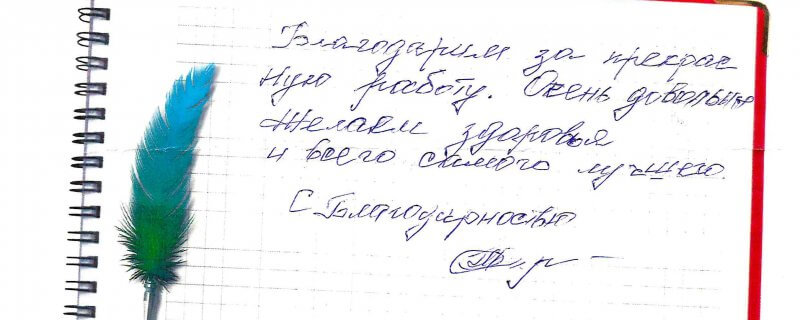 Благодарим за прекрас
ную работу. Очень довольны
Желаем здоровья
и всего самого лучшего.
С Благодарностью